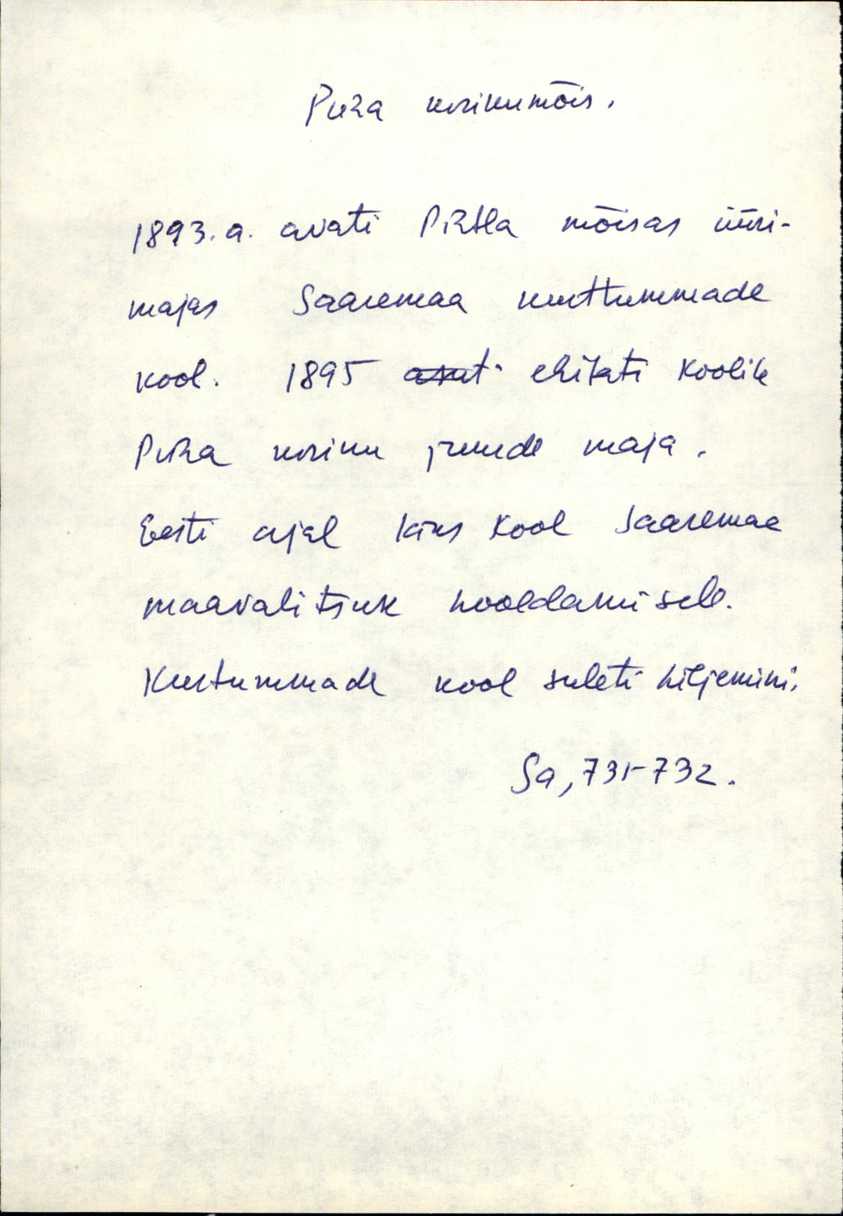 Püha kirikumõis.
1893. a. avati Pihtla mõisas üüri-
majas Saaremaa kurttummade
kool. 1895 ehitati koolile
Püha kiriku juurde maja.
Eesti ajal läks kool Saaremaa
maavalitsuse hooldamisele.
Kurtummade kool suleti hiljemini.
Sa, 731-732.